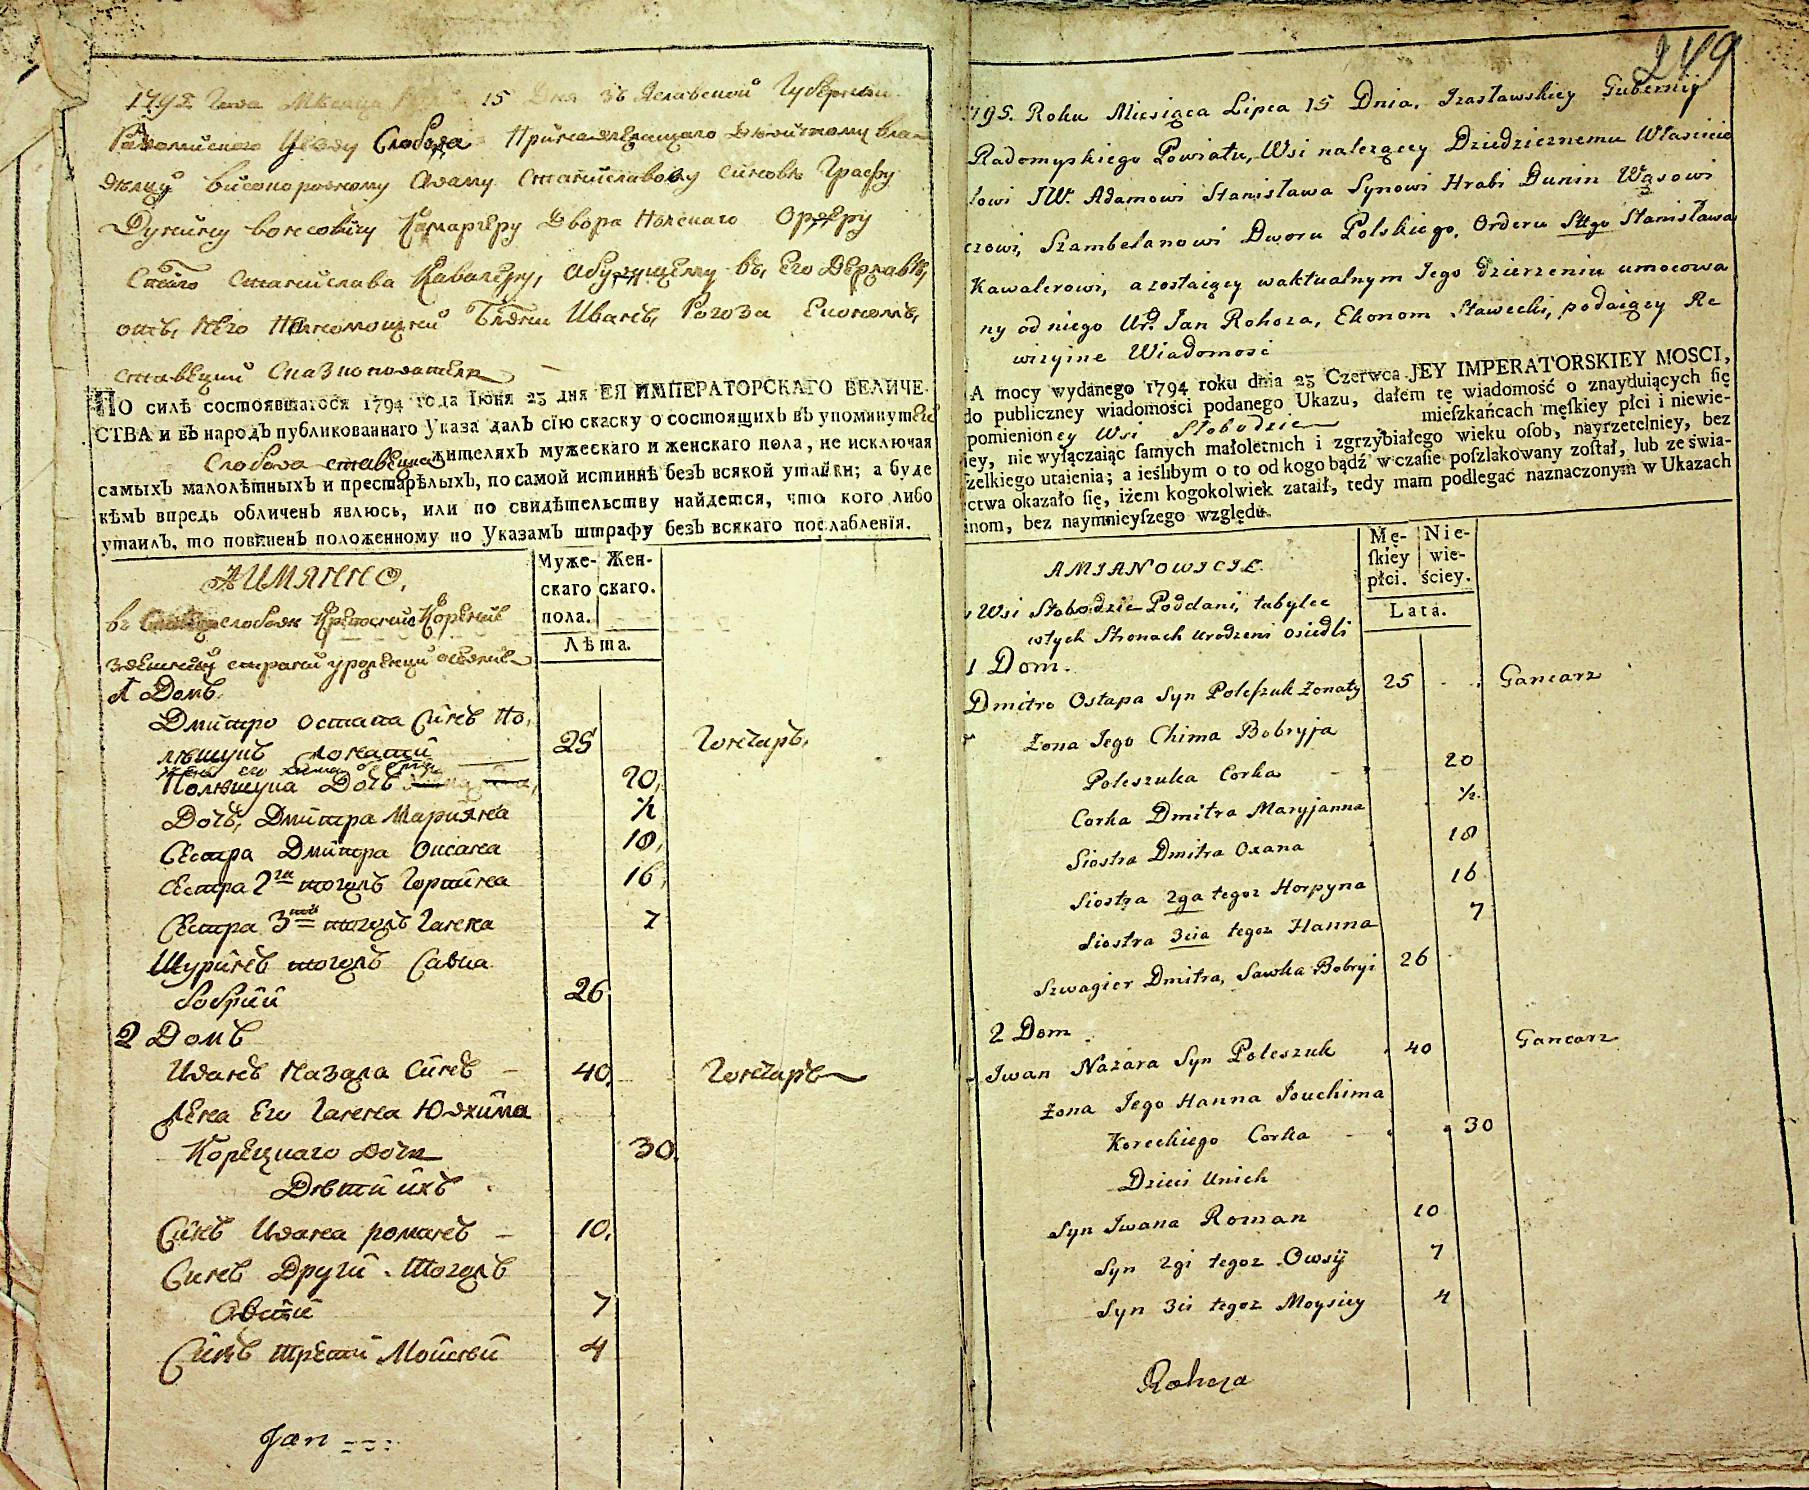 1795 Года Мѣсяца 15 Дня Зъ Яславской Губернии
Радомиского Уезду Слобода Принадлежащаго
високородному Адаму Станиславову Синовѣ Графу
Дунину вонсовичу Камаргеру Двора Полскаго Ордеру
Станислава Кавалеру, Его Державѣ,
отъ, Него Иванъ, Рогоза Економъ,
ставецкий Сказкоподатель
ПО силѣ состоявшагося 1794 года Іюня 23 дня ЕЯ ИМПЕРАТОРСКАГО ВЕЛИЧЕ-
СТВА и въ народъ публикованнаго Указа далъ сію скаску о состоящихъ въ упомянутей
Слобода ставецка жителяхъ мужескаго и женскаго пола, не исключая
самыхъ малолѣтныхъ и престарѣлыхъ, по самой истиннѣ безъ всякой утайки; а буде
кѣмъ впредь обличенъ явлюсь, или по свидѣтельству найдется, что кого либо
утаилъ, то повиненъ положенному по Указамъ штрафу безъ всякаго послабленія.
АИМЯННО,
Муже-скаго пола. Жен-скаго.
Лѣта.
въ слободи Кресткие Корение
здешней страни урожении
1 Домъ
Дмитро Остапа Синъ По,
лѣщукъ Жонатий 25 Гончаръ,
жена его Хима
Полѣщука Дочъ 20,
Дочъ, Дмитра Марияна ½
Сестра Дмитра Оксана 18,
сестра 2га тогожъ Горпина 16,
Сестра 3тай тогожъ Ганна 7
Шуринъ тогожъ Савка
бобрий 26
2 Домъ
Иванъ Назара Синъ 40, Гончаръ
Жена Его Ганна Юхима
Корецкаго дочь 30.
Дѣти ихъ
Синъ Ивана романъ 10,
Синъ Други Тогожъ
Овсий 7
Синъ трети Мойсей 4
Jan
249
795. Roku Miesiąca Lipca 15 Dnia. Izasławskiey Gubernij
Radomyskiego Powiatu, Wsi nalezącey Dziedzicznemu Włascicie
lowi JW. Adamowi Stanisława Synowi Hrabi Dunin Wąsowi
czowi, Szambelanowi Dworu Polskiego, Orderu Sttgo Stanisława
Kawalerowi, a zostaiącey waktualnym Jego dzierzeniu umocowa
ny od niego Ur. Jan Rohoza, Ekonom Stawecki, podaiący Re
wizyine Wiadomosc
A mocy wydanego 1794 roku dnia 23 Czerwca JEY IMPERATORSKIEY MOSCI,
do publiczney wiadomości podanego Ukazu, dałem tę wiadomość o znayduiących się
pomienioney Wsi Słobodzie mieszkańcach męskiey płci i niewie-
iey, nie wyłączaiąc samych małoletnich i zgrzybiałego wieku osob, nayrzetelniey, bez
zelkiego utaienia; a ieślibym o to od kogo bądź w czasie poszlakowany został, lub ze świa-
ctwa okazało się, iżem kogokolwiek zataił, tedy mam podlegać naznaczonym w Ukazach
inom, bez naymnieyszego względu.
AMIANOWICIE.
Mę-skiey płci. Nie-wie-ściey.
Lata.
Wsi Słobodzie Poddani, tubylce
wtych Stronach urodzeni osiedli
1 Dom.
Dmitro Ostapa Syn Poleszuk Zonaty 25 Gancarz
Zona Jego Chima Bobryja
Poleszuka Corka 20
Corka Dmitra Maryjanna ½
Siostra Dmitra Oxana 18
Siostra 2ga tegoz Horpyna 16
Siostra 3cia tegoz Hanna 7
Szwagier Dmitra, Sawka Bobryi 26
2 Dom
Iwan Nazara Syn Poleszuk 40 Gancarz
Zona Jego Hanna Jouchima
Koreckiego Corka 30
Dzieci Unich
Syn Iwana Roman 10
Syn 2gi tegoz Owsij 7
Syn 3ci tegoz Moysiey 4
Rohoza